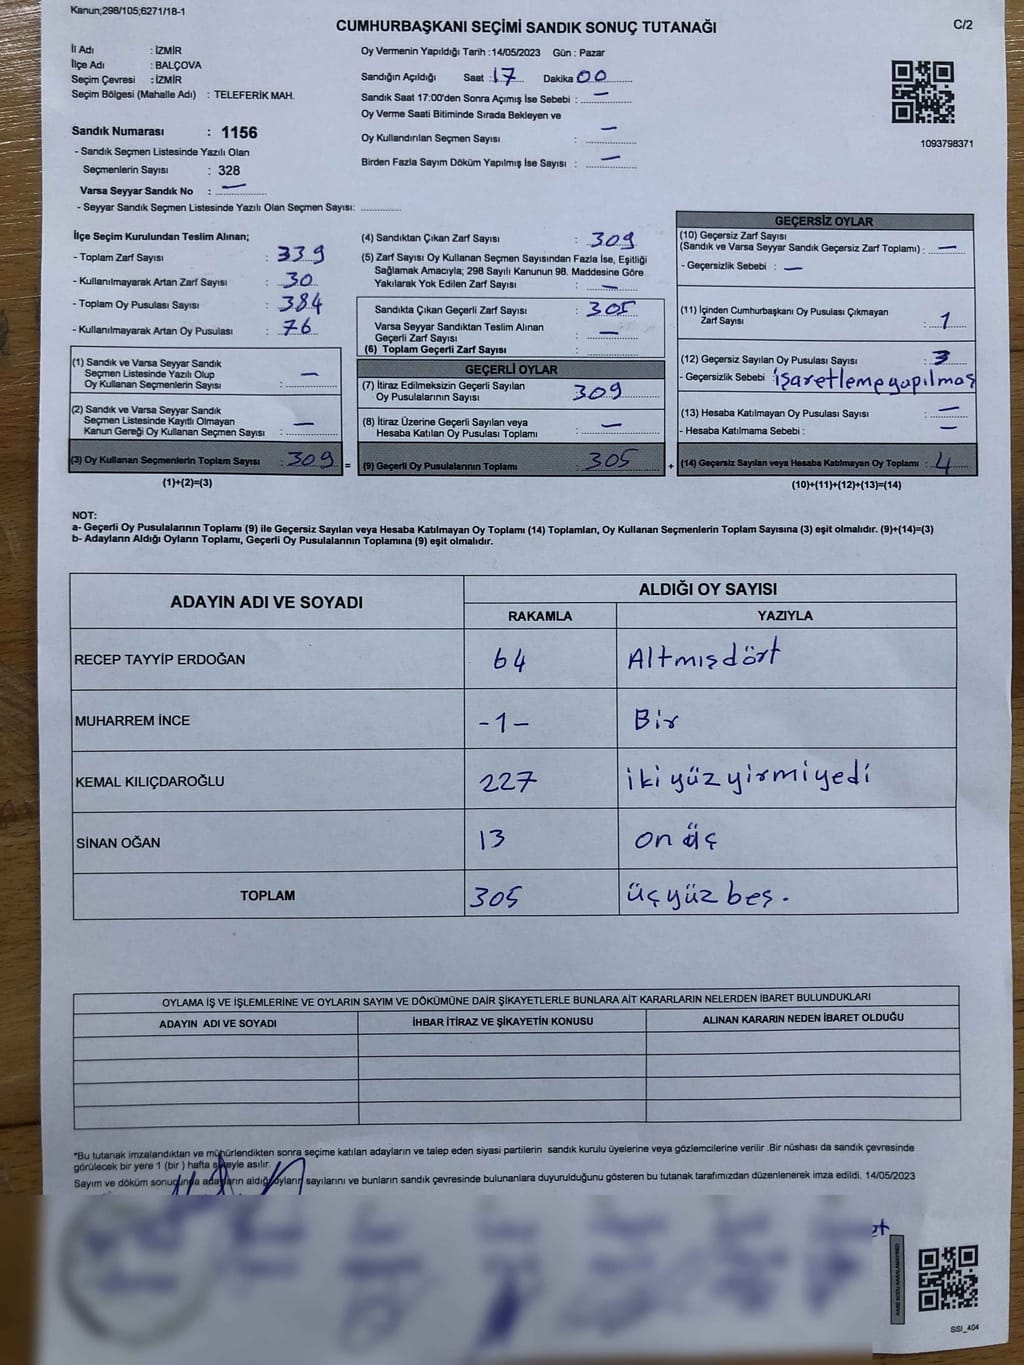 Kanun;298/105;6271/18-1
CUMHURBAŞKANI SEÇİMİ SANDIK SONUÇ TUTANAĞI
C/2
İl Adı : İZMİR
İlçe Adı : BALÇOVA
Seçim Çevresi : İZMİR
Seçim Bölgesi (Mahalle Adı) : TELEFERİK MAH.
Sandık Numarası : 1156
- Sandık Seçmen Listesinde Yazılı Olan
Seçmenlerin Sayısı : 328
Varsa Seyyar Sandık No : —
- Seyyar Sandık Seçmen Listesinde Yazılı Olan Seçmen Sayısı: ............
Oy Vermenin Yapıldığı Tarih : 14/05/2023 Gün : Pazar
Sandığın Açıldığı Saat : 17 Dakika 00
Sandık Saat 17:00'den Sonra Açımış İse Sebebi : —
Oy Verme Saati Bitiminde Sırada Bekleyen ve
Oy Kullandırılan Seçmen Sayısı : —
Birden Fazla Sayım Döküm Yapılmış İse Sayısı : —
1093798371
İlçe Seçim Kurulundan Teslim Alınan;
- Toplam Zarf Sayısı : 339
- Kullanılmayarak Artan Zarf Sayısı : 30
- Toplam Oy Pusulası Sayısı : 384
- Kullanılmayarak Artan Oy Pusulası : 76
(1) Sandık ve Varsa Seyyar Sandık
Seçmen Listesinde Yazılı Olup
Oy Kullanan Seçmenlerin Sayısı : —
(2) Sandık ve Varsa Seyyar Sandık
Seçmen Listesinde Kayıtlı Olmayan
Kanun Gereği Oy Kullanan Seçmen Sayısı : —
(3) Oy Kullanan Seçmenlerin Toplam Sayısı : 309 =
(1)+(2)=(3)
(4) Sandıktan Çıkan Zarf Sayısı : 309
(5) Zarf Sayısı Oy Kullanan Seçmen Sayısından Fazla İse, Eşitliği
Sağlamak Amacıyla; 298 Sayılı Kanunun 98. Maddesine Göre
Yakılarak Yok Edilen Zarf Sayısı : —
Sandıkta Çıkan Geçerli Zarf Sayısı : 305
Varsa Seyyar Sandıktan Teslim Alınan
Geçerli Zarf Sayısı : —
(6) Toplam Geçerli Zarf Sayısı :
GEÇERLİ OYLAR
(7) İtiraz Edilmeksizin Geçerli Sayılan
Oy Pusulalarının Sayısı : 309
(8) İtiraz Üzerine Geçerli Sayılan veya
Hesaba Katılan Oy Pusulası Toplamı : —
(9) Geçerli Oy Pusulalarının Toplamı : 305 +
GEÇERSİZ OYLAR
(10) Geçersiz Zarf Sayısı
(Sandık ve Varsa Seyyar Sandık Geçersiz Zarf Toplamı) : —
- Geçersizlik Sebebi : —
(11) İçinden Cumhurbaşkanı Oy Pusulası Çıkmayan
Zarf Sayısı : 1
(12) Geçersiz Sayılan Oy Pusulası Sayısı : 3
- Geçersizlik Sebebi : işaretleme yapılmaş
(13) Hesaba Katılmayan Oy Pusulası Sayısı : —
- Hesaba Katılmama Sebebi : —
(14) Geçersiz Sayılan veya Hesaba Katılmayan Oy Toplamı : 4
(10)+(11)+(12)+(13)=(14)
NOT:
a- Geçerli Oy Pusulalarının Toplamı (9) ile Geçersiz Sayılan veya Hesaba Katılmayan Oy Toplamı (14) Toplamları, Oy Kullanan Seçmenlerin Toplam Sayısına (3) eşit olmalıdır. (9)+(14)=(3)
b- Adayların Aldığı Oyların Toplamı, Geçerli Oy Pusulalarının Toplamına (9) eşit olmalıdır.
ADAYIN ADI VE SOYADI
ALDIĞI OY SAYISI
RAKAMLA YAZIYLA
RECEP TAYYİP ERDOĞAN 64 Altmışdört
MUHARREM İNCE -1- Bir
KEMAL KILIÇDAROĞLU 227 iki yüz yirmi yedi
SİNAN OĞAN 13 on üç
TOPLAM 305 üç yüz beş.
OYLAMA İŞ VE İŞLEMLERİNE VE OYLARIN SAYIM VE DÖKÜMÜNE DAİR ŞİKAYETLERLE BUNLARA AİT KARARLARIN NELERDEN İBARET BULUNDUKLARI
ADAYIN ADI VE SOYADI İHBAR İTİRAZ VE ŞİKAYETİN KONUSU ALINAN KARARIN NEDEN İBARET OLDUĞU
*Bu tutanak imzalandıktan ve mühürlendikten sonra seçime katılan adayların ve talep eden siyasi partilerin sandık kurulu üyelerine veya gözlemcilerine verilir .Bir nüshası da sandık çevresinde
görülecek bir yere 1 (bir ) hafta süreyle asılır.
Sayım ve döküm sonucunda adayların aldığı oyların sayılarını ve bunların sandık çevresinde bulunanlara duyurulduğunu gösteren bu tutanak tarafımızdan düzenlenerek imza edildi. 14/05/2023
SSI_404